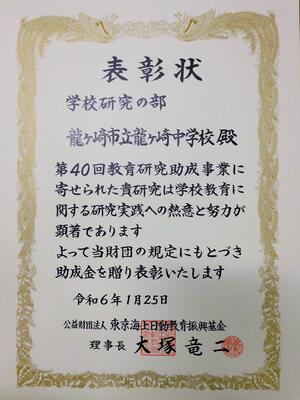 表彰状
学校研究の部
龍ケ崎市立龍ケ崎中学校 殿
第40回教育研究助成事業に
寄せられた貴研究は学校教育に
関する研究実践への熱意と努力が
顕著であります
よって当財団の規定にもとづき
助成金を贈り表彰いたします
令和6年1月25日
公益財団法人 東京海上日動教育振興基金
理事長 大塚竜二